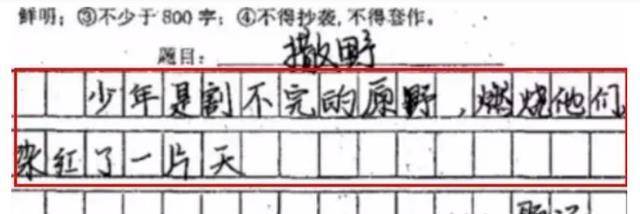 鲜明；③不少于800字；④不得抄袭，不得套作。
题目：撒野
少年是割不完的原野，燃烧他们，
染红了一片天